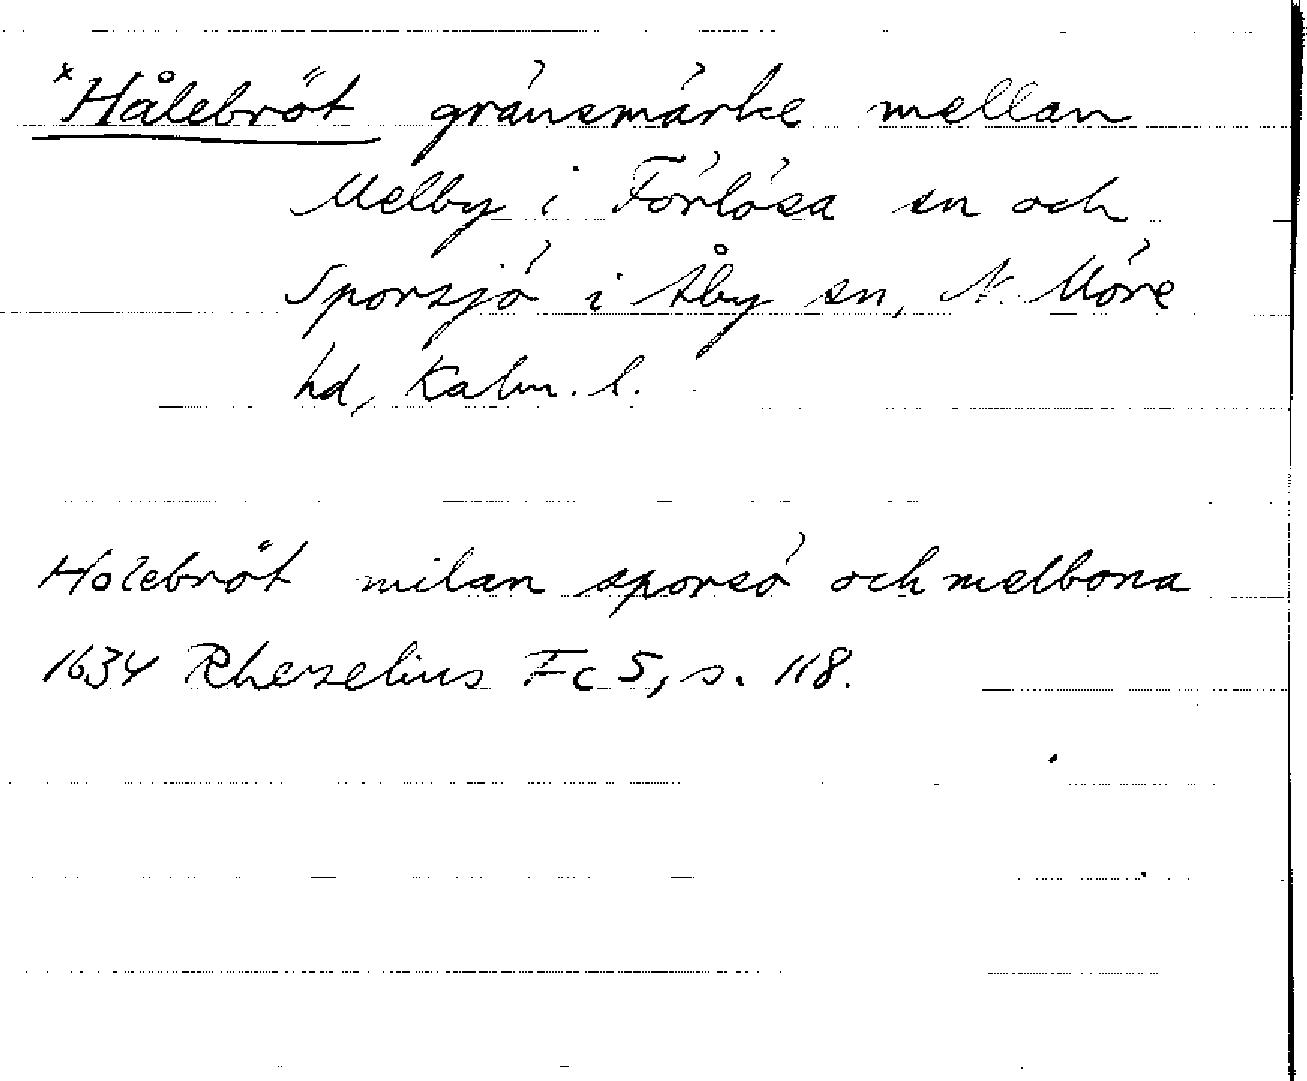 *Hålebröt gränsmärke mellan
Melby i Förlösa sn och
Sporsjö i Åby sn, N. Möre
hd, Kalm. l.
Holebröt milan sporsö och melbona
1634 Rhezelius Fc 5, s. 118.